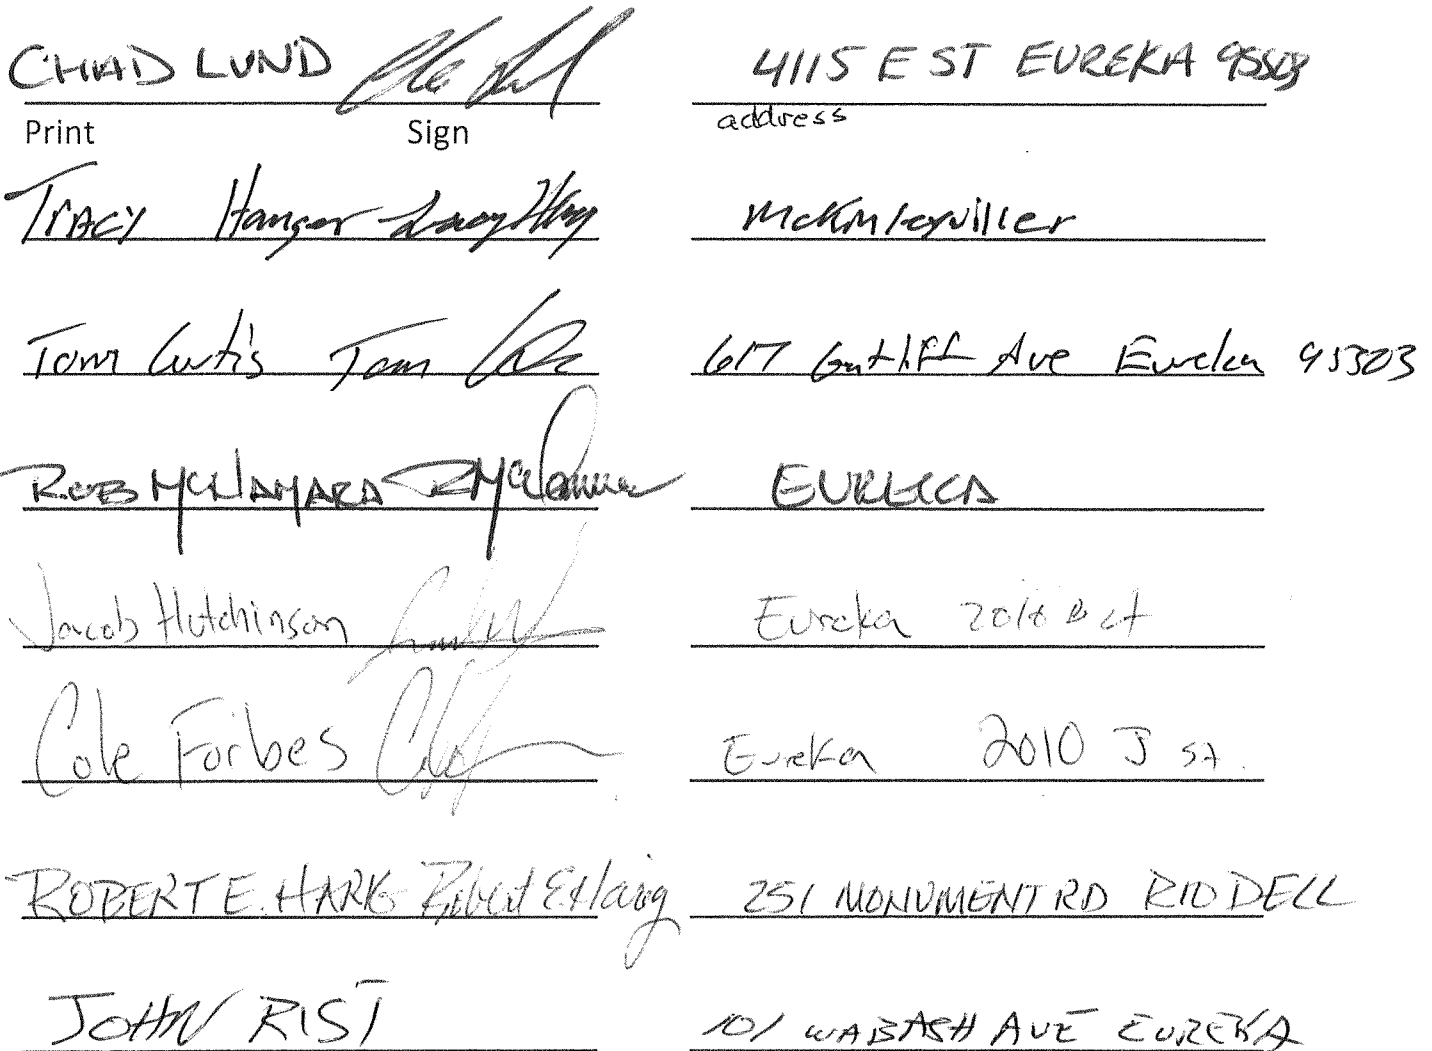 CHAD LUND 4115 E ST EUREKA 95503
Print Sign address
TRACY Hanger Tracy McKinleyviller
Tom Curtis Tom Curtis 617 Gatliff Ave Eureka 95503
ROB MCNAMARA RMcNamara EUREKA
Jacob Hutchinson Eureka 2010
Cole Forbes Eureka 2010 J st.
ROBERT E. HARIG Robert E. Harig 251 MONUMENT RD RIO DELL
JOHN RIST 101 WABASH AVE EUREKA